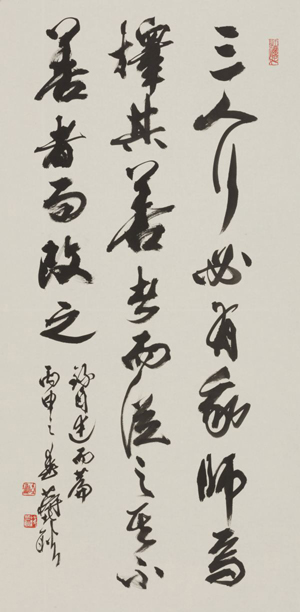 三人行必有我師焉
擇其善者而從之其不
善者而改之
錄自述而篇
丙申之春